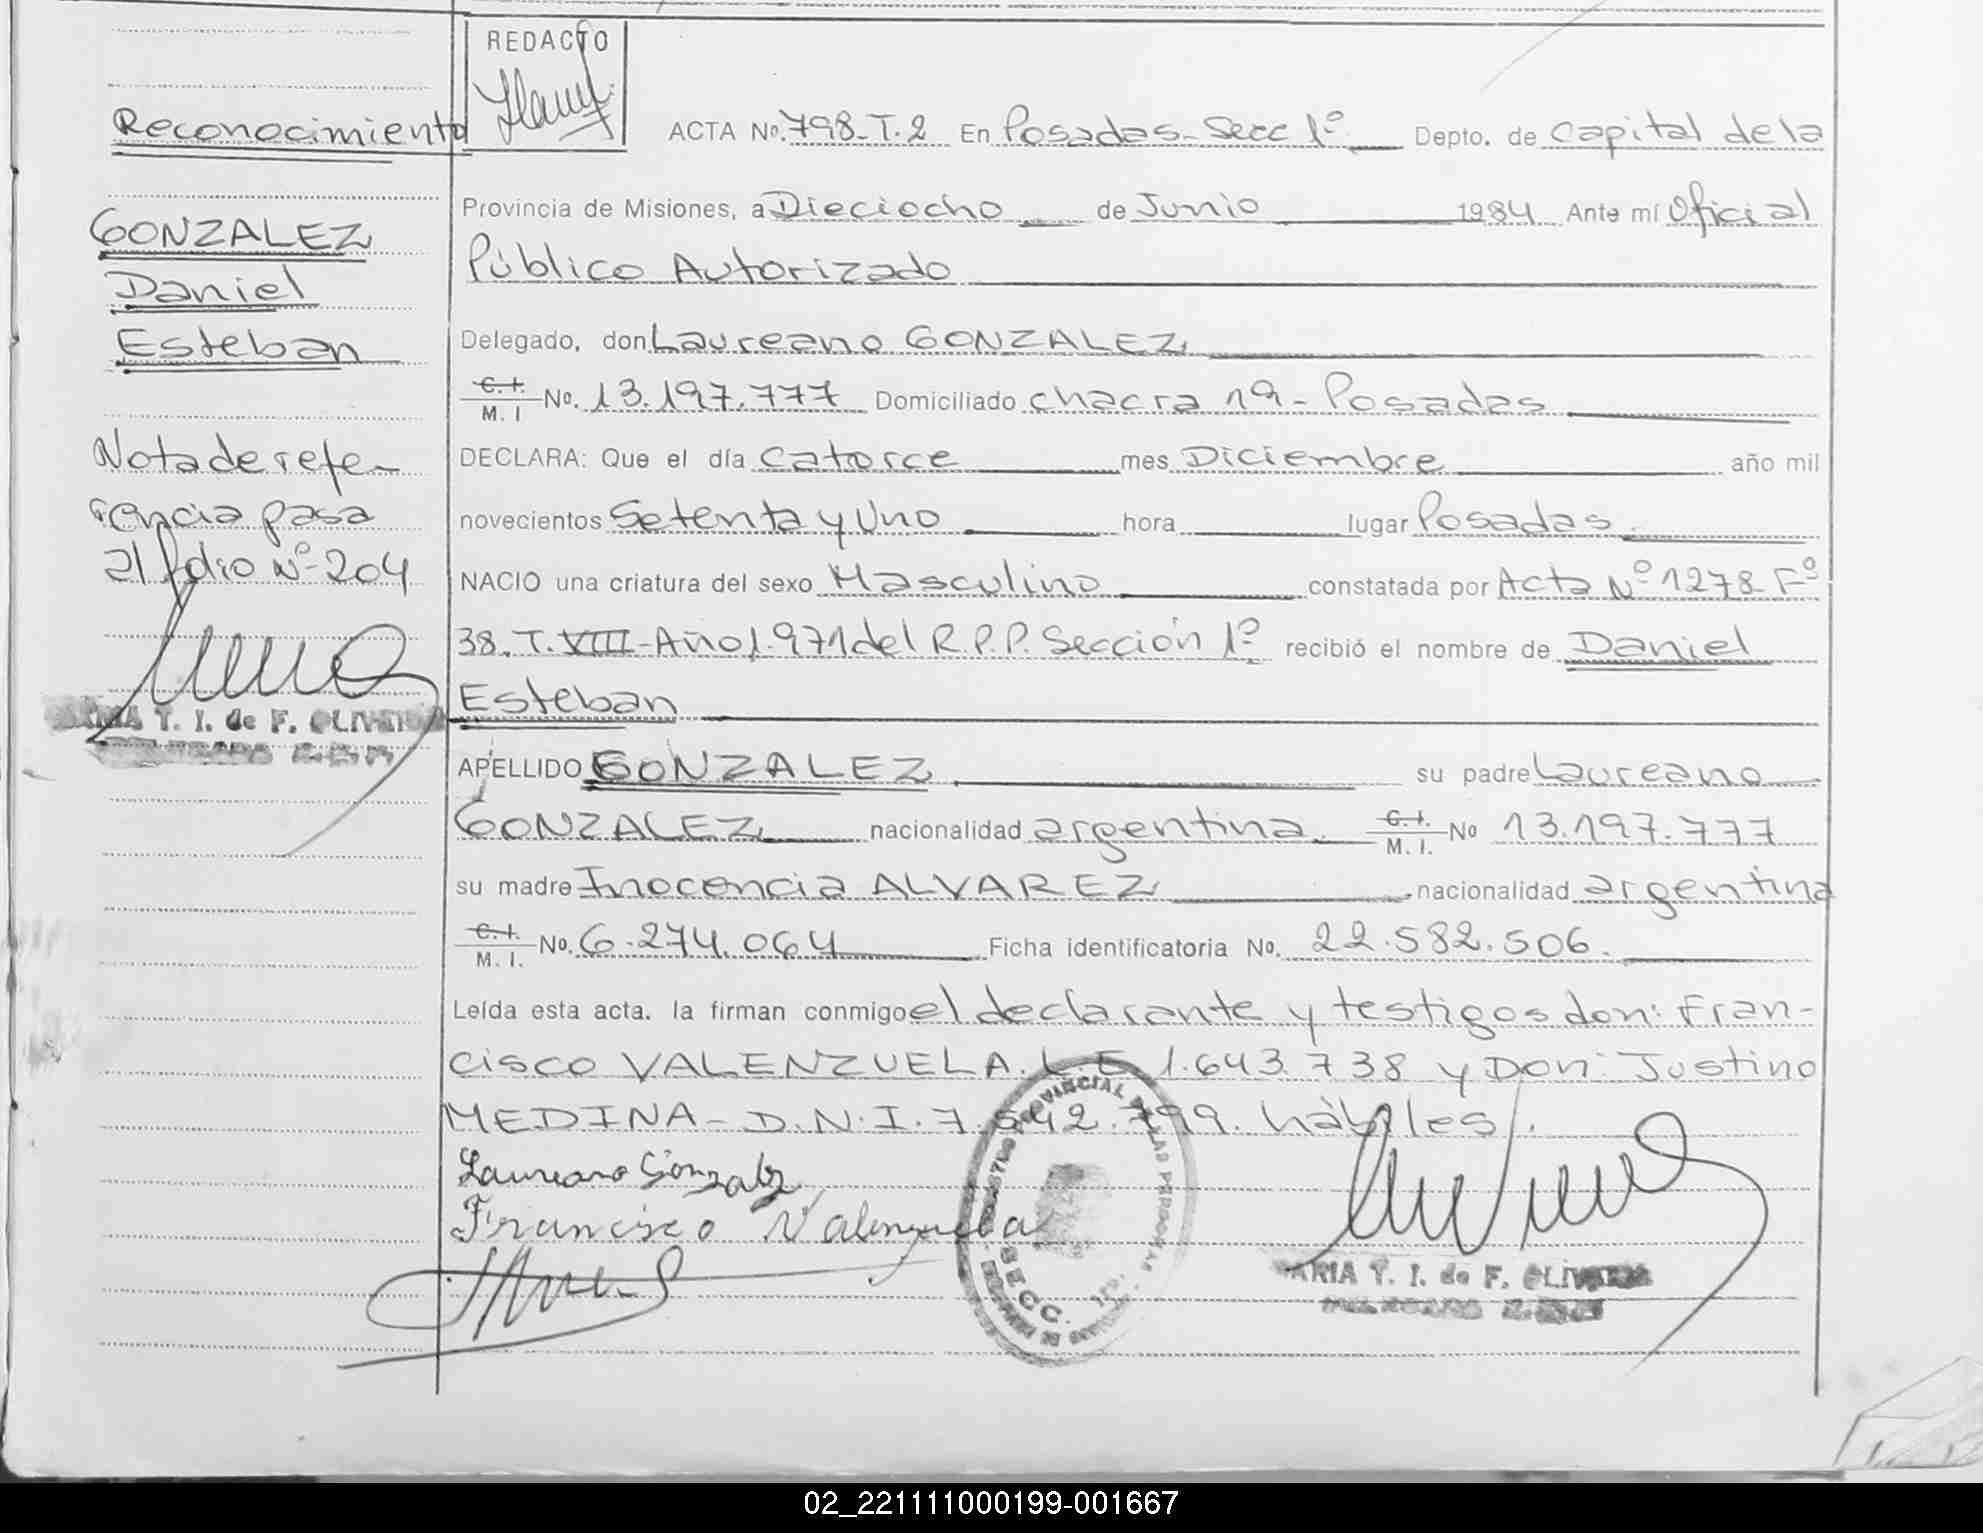 REDACTO
Reconocimiento
ACTA No. 798-T.2 En Posadas-Secc 1º Depto. de Capital de la
Provincia de Misiones, a Dieciocho de Junio 1984 Ante mí Oficial
Público Autorizado
GONZALEZ
Daniel
Esteban
Delegado, don Laureano GONZALEZ
C.I. M. I No. 13.197.777 Domiciliado chacra 19 - Posadas
Nota de refe-
rencia pasa
al folio Nº 204
DECLARA: Que el día Catorce mes Diciembre año mil
novecientos Setenta y Uno hora lugar Posadas.
NACIO una criatura del sexo Masculino constatada por Acta Nº 1278 Fº
38. T. VIII-Año 1.971 del R.P.P. Sección 1º recibió el nombre de Daniel
Esteban
MARIA T. I. de F. OLIVEIRA
APELLIDO GONZALEZ su padre Laureano
GONZALEZ nacionalidad argentina. C.I. M. I. No 13.197.777
su madre Inocencia ALVAREZ nacionalidad argentina
C.I. M. I. No. 6.274.064 Ficha identificatoria No. 22.582.506.
Leída esta acta. la firman conmigo el declarante y testigos don: Fran-
cisco VALENZUELA. L.E. 1.643.738 y Don: Justino
MEDINA - D.N.I. 7.542.799. hàbiles.
Laureano Gonzalez
Francisco Valenzuela
PROVINCIAL DE LAS PERSONAS
SECC.
MARIA T. I. de F. OLIVEIRA
02_221111000199-001667